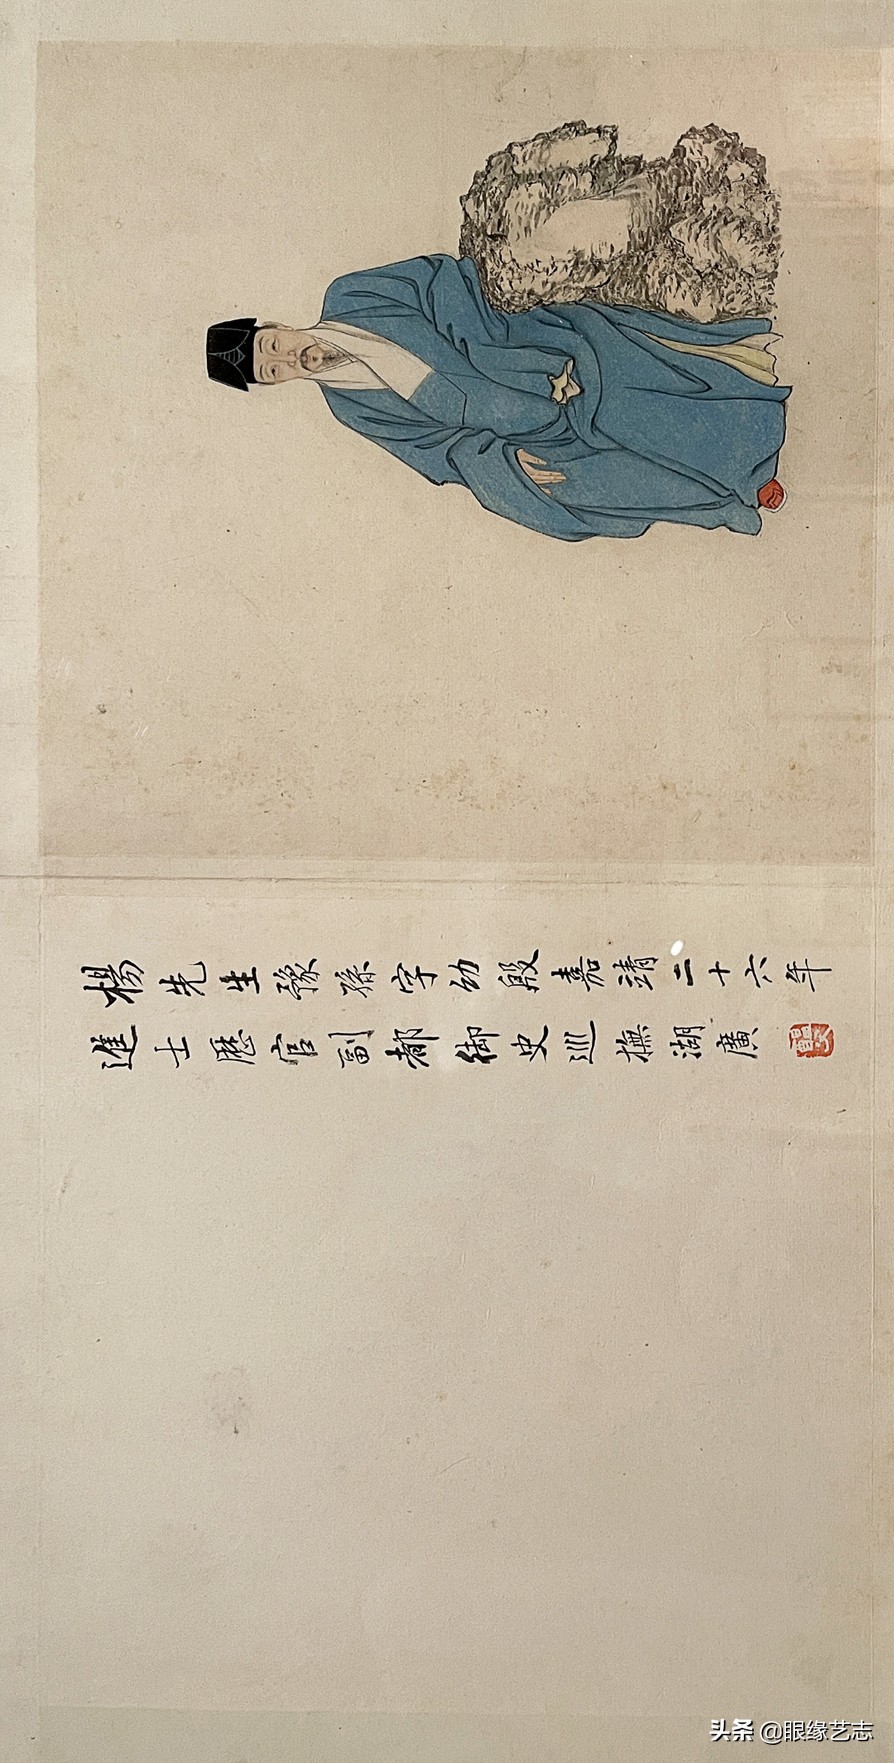 楊先生豫孫字幼殷嘉靖二十六年
進士歷官副都御史巡撫湖廣
头条 @眼缘艺志